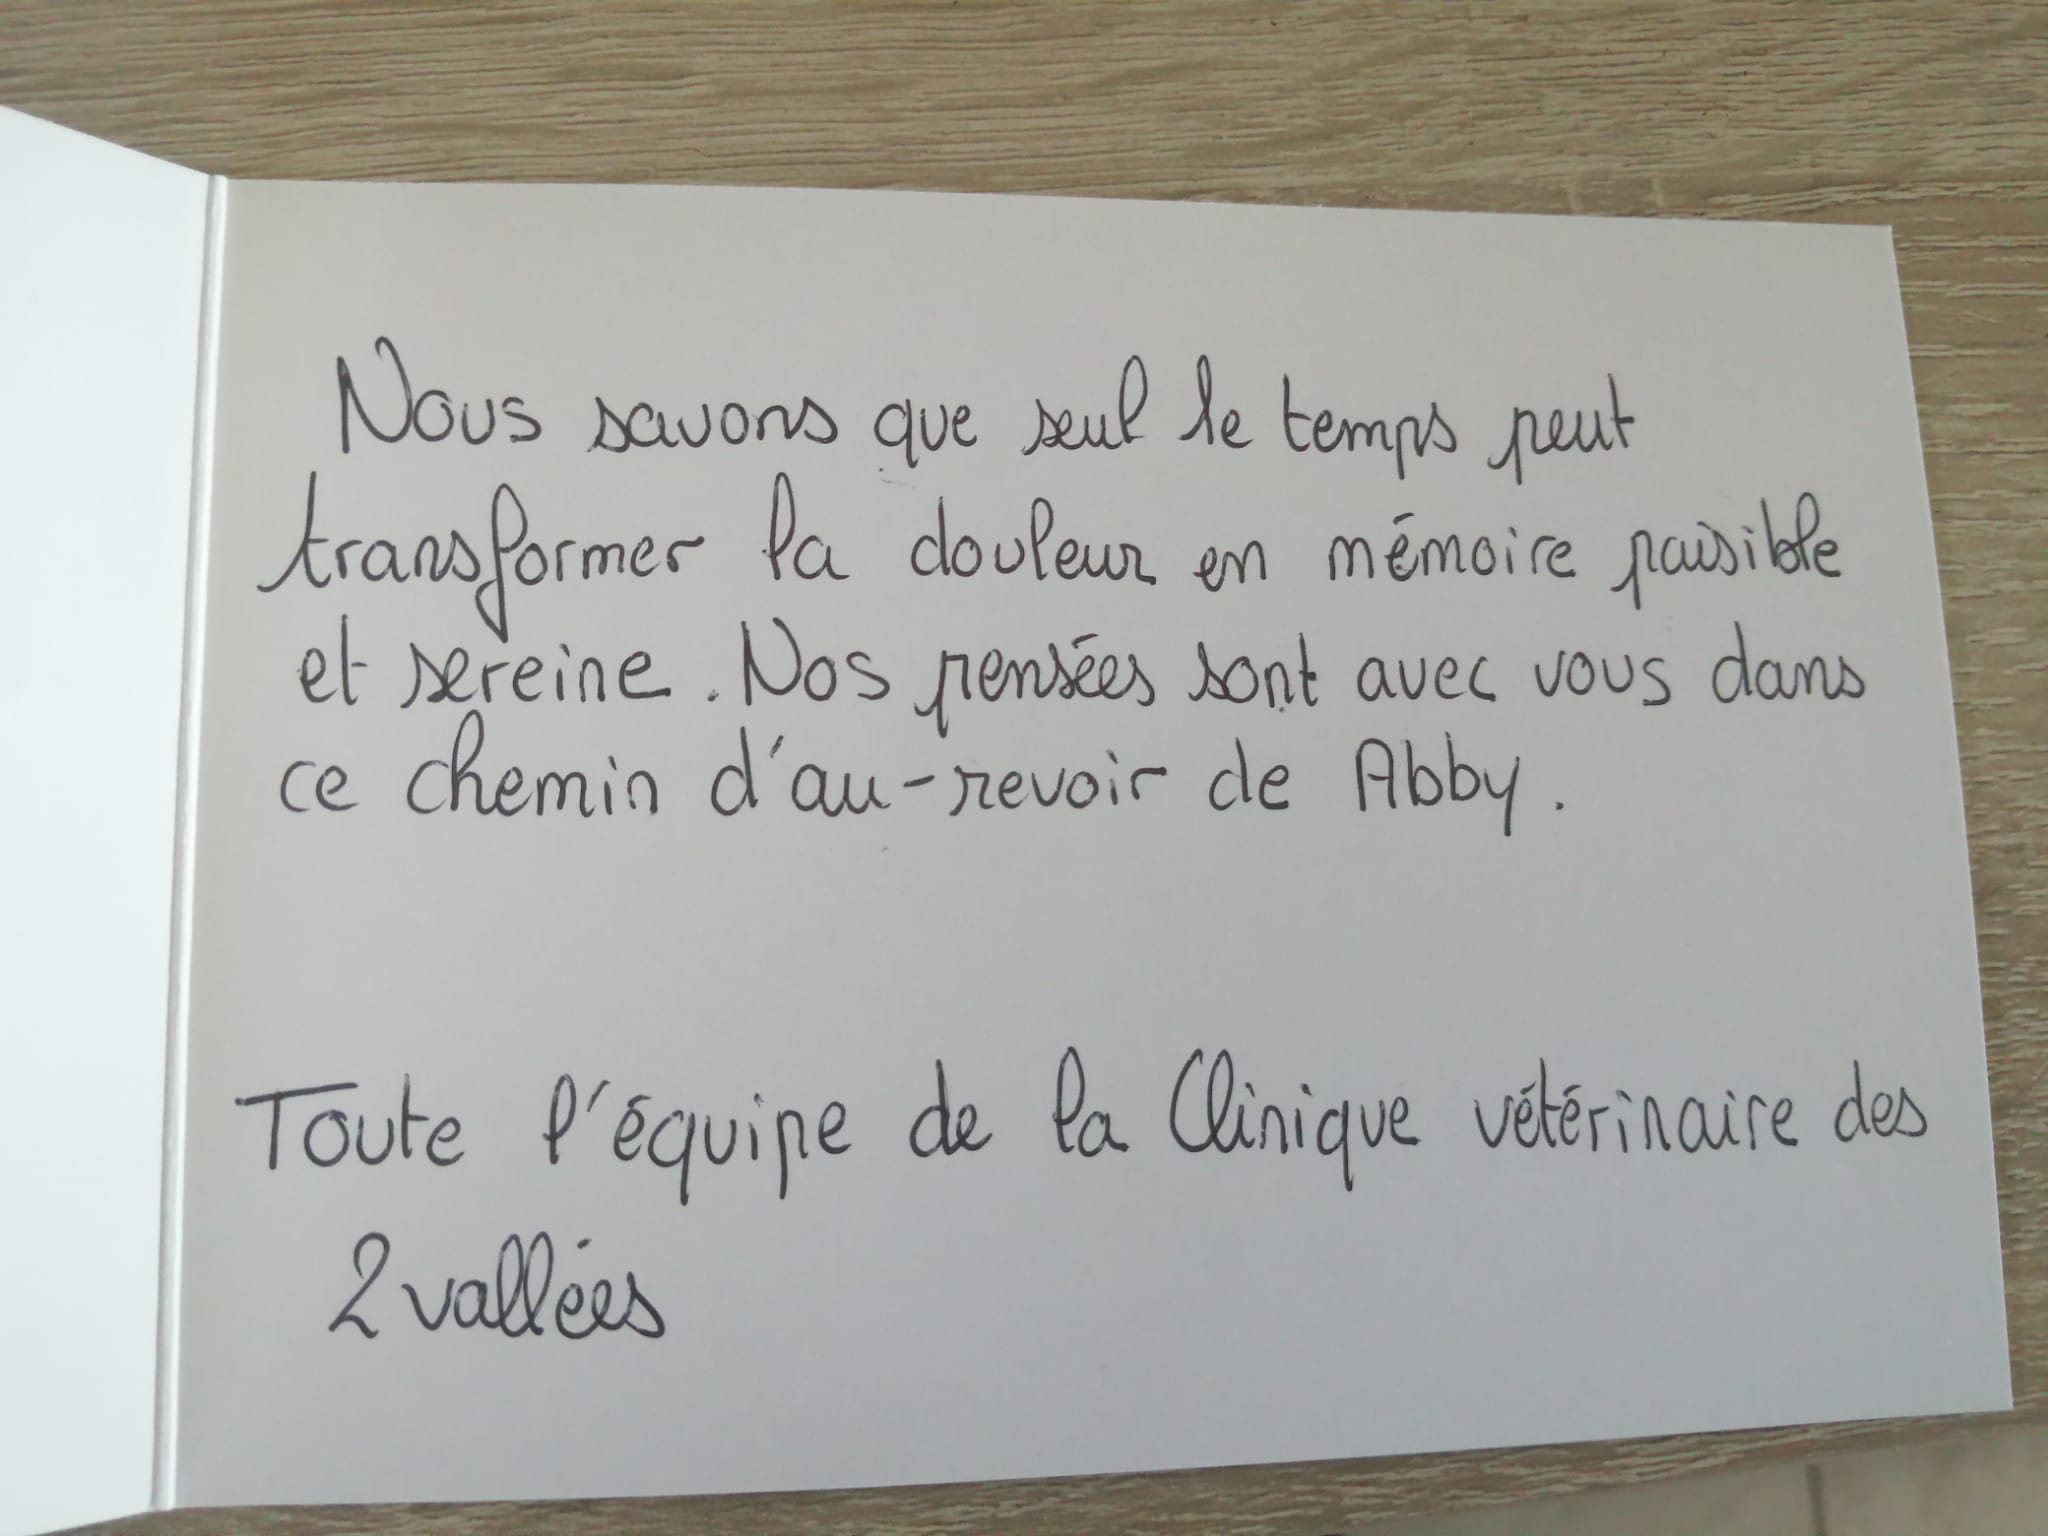 Nous savons que seul le temps peut
transformer la douleur en mémoire paisible
et sereine. Nos pensées sont avec vous dans
ce chemin d'au-revoir de Abby.
Toute l'équipe de la Clinique vétérinaire des
2 vallées